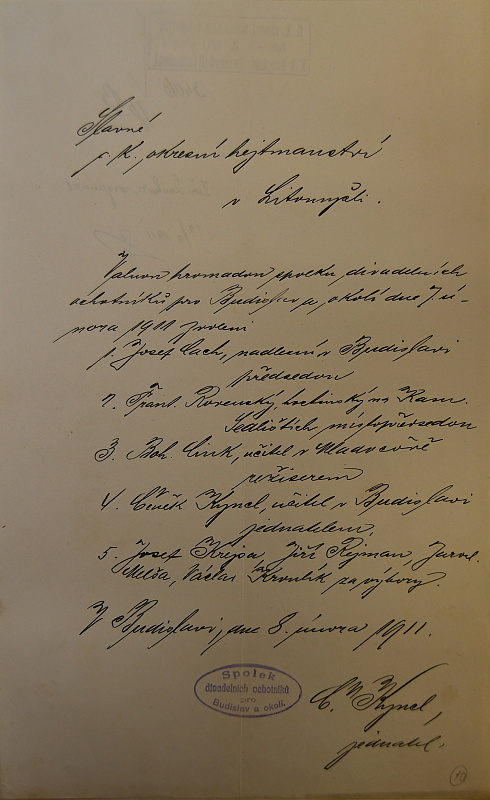 Slavné
c. k. okresní hejtmanství
v Litomyšli.
Valnou hromadou spolku divadelních
ochotníků pro Budislav a okolí dne 7. ú-
nora 1911 zvoleni
1. Josef Cach, nadlesní v Budislavi
předsedou
2. Frant. Rovenský, v Kam.
Sedlištích místopředsedou
3. Boh. Cink, učitel v Mladočově
režiserem
4. Čeněk Kyncl, učitel v Budislavi
jednatelem,
5. Josef Krejsa, Jiří Rejman, Jarosl.
Melša, Václav Kroulík za výbory.
V Budislavi, dne 8. února 1911.
Spolek
divadelních ochotníků
pro
Budislav a okolí.
Č. Kyncl,
jednatel.
10